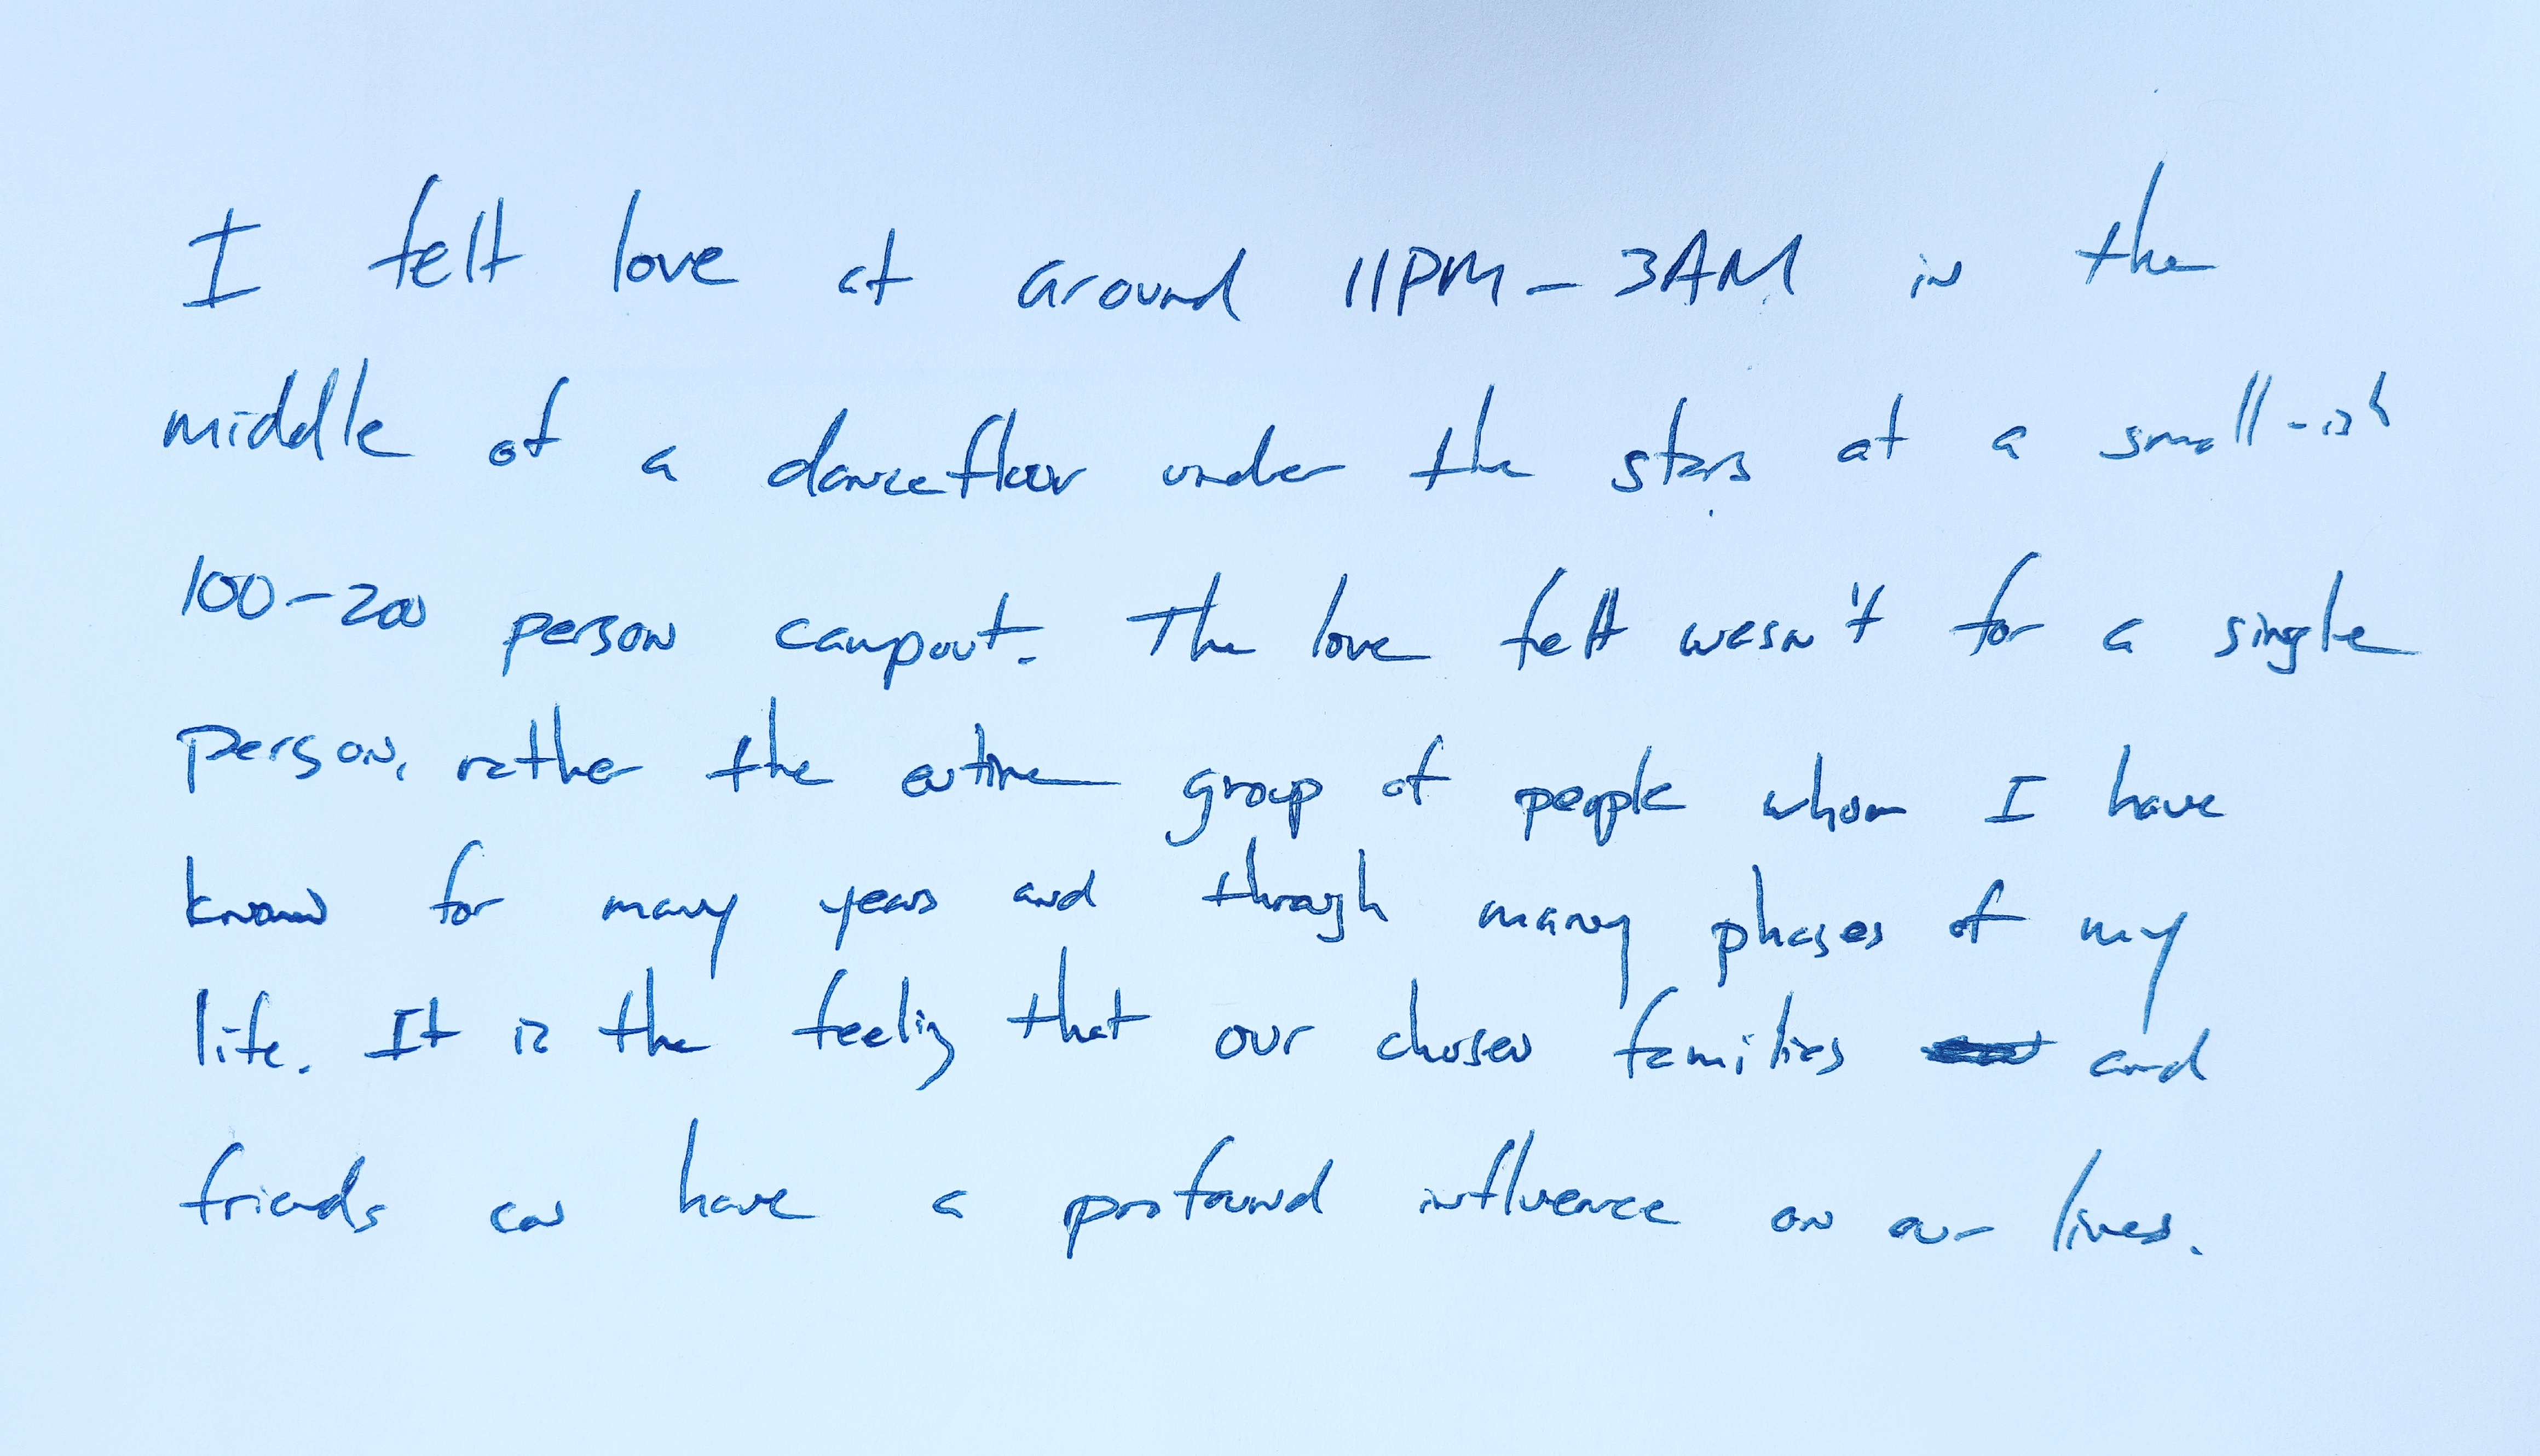 I felt love at around 11PM - 3AM in the
middle of a dancefloor under the stars at a small-ish
100-200 person campout. The love felt wasn't for a single
person, rather the entire group of people whom I have
known for many years and through many phases of my
life. It is the feeling that our chosen families and
friends can have a profound influence on our lives.